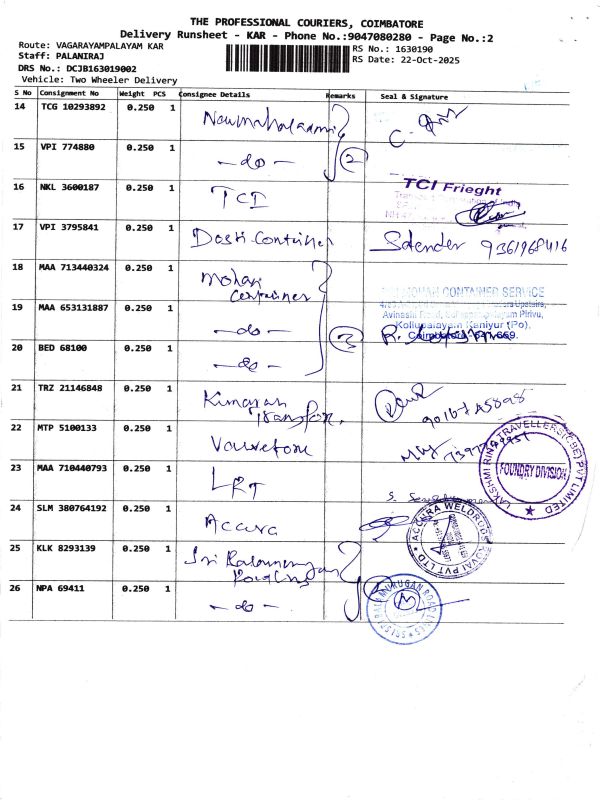 THE PROFESSIONAL COURIERS, COIMBATORE
Delivery Runsheet - KAR - Phone No.:9047080280 - Page No.:2
Route: VAGARAYAMPALAYAM KAR
RS No.: 1630190
Staff: PALANIRAJ
RS Date: 22-Oct-2025
DRS No.: DCJB163019002
Vehicle: Two Wheeler Delivery
S No Consignment No Weight PCS Consignee Details Remarks Seal & Signature
14 TCG 10293892 0.250 1
15 VPI 774880 0.250 1 - do - 2
16 NKL 3600187 0.250 1 TCI
TCI Frieght
17 VPI 3795841 0.250 1 Dosti Container Satender 9361968416
18 MAA 713440324 0.250 1 Mohan Container
MOHAN CONTAINER SERVICE
Avinashi Road,
Kollupalayam Kaniyur (Po),
Coimbatore - 641 659.
19 MAA 653131887 0.250 1 - do - 3
20 BED 68100 0.250 1 - do -
21 TRZ 21146848 0.250 1
22 MTP 5100133 0.250 1
23 MAA 710440793 0.250 1 LRT
LAKSHMI RING TRAVELLERS (CBE) PVT LIMITED
FOUNDRY DIVISION
24 SLM 380764192 0.250 1 Accura
ACCURA WELDRODS KOVAI PVT LTD
25 KLK 8293139 0.250 1 Sri
26 NPA 69411 0.250 1 - do -